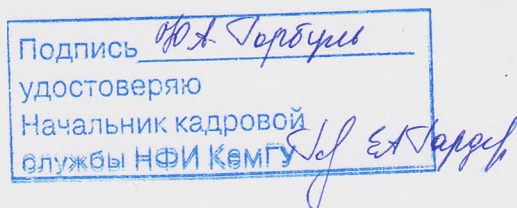 Подпись Ю А Горбуль
удостоверяю
Начальник кадровой
службы НФИ КемГУ ЕА